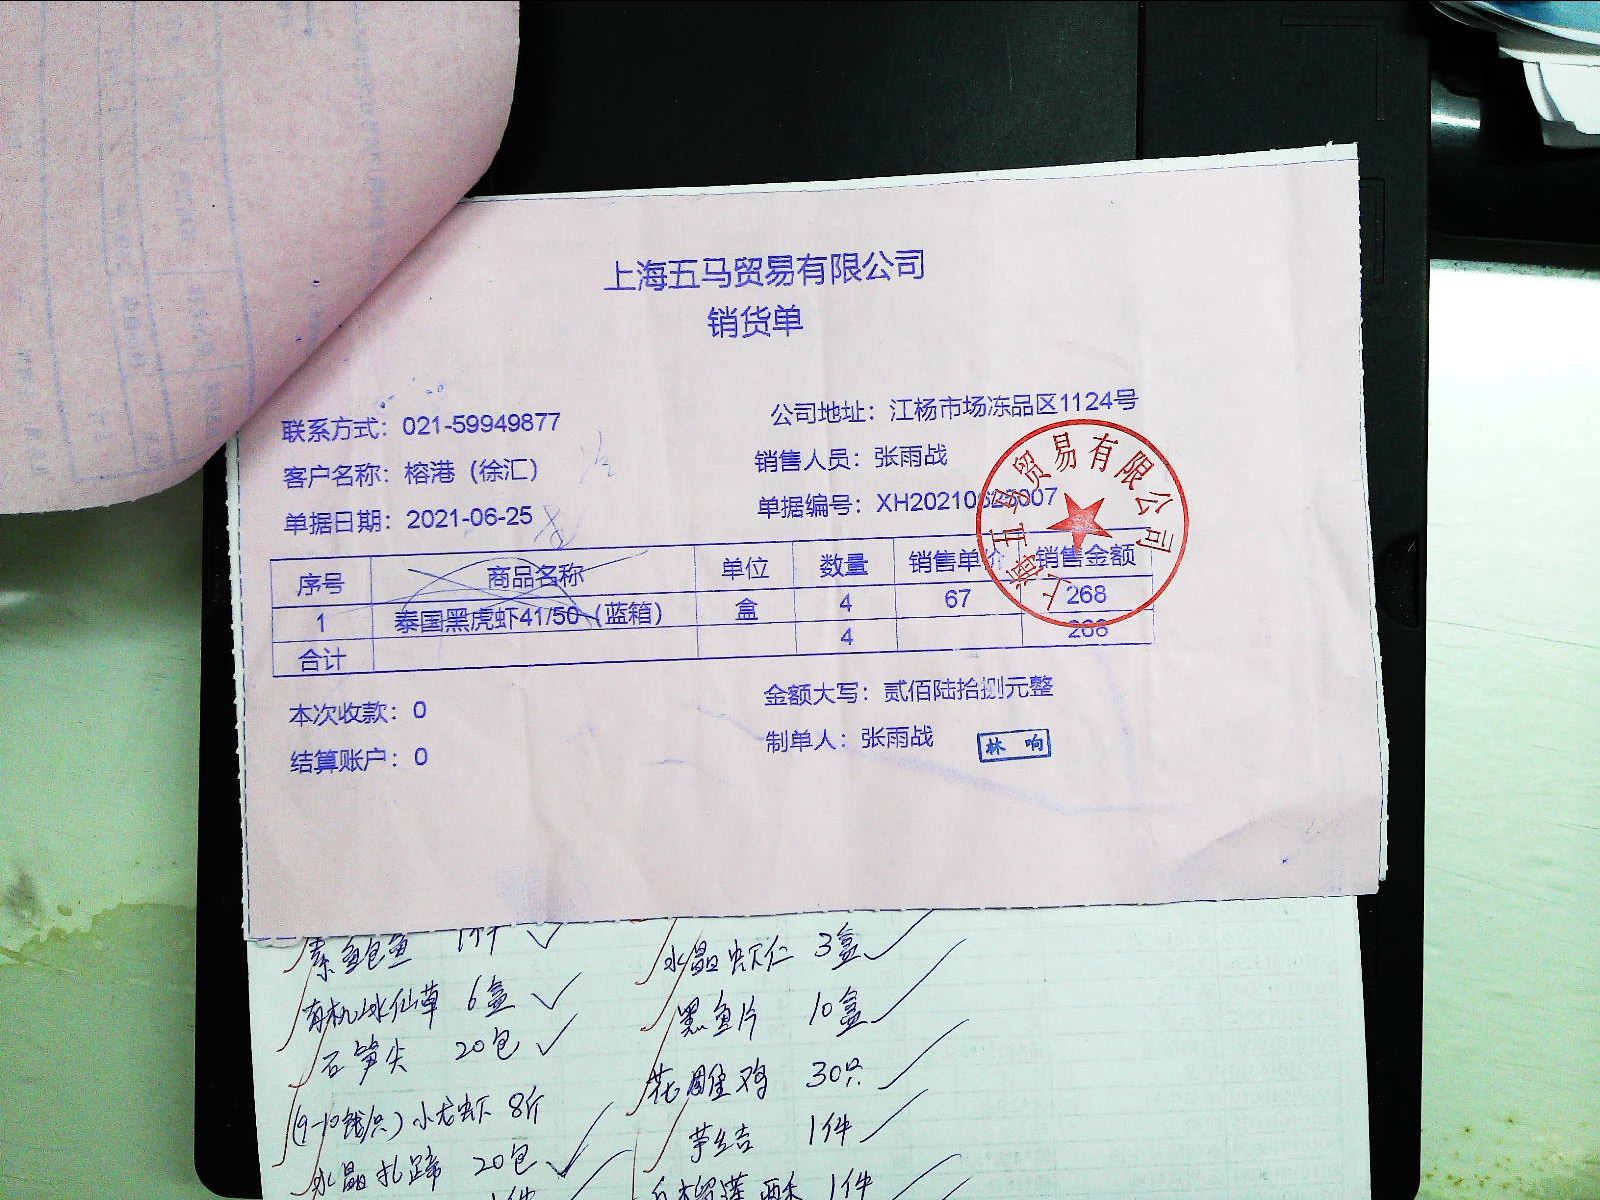 上海五马贸易有限公司
销货单
联系方式：021-59949877
公司地址：江杨市场冻品区1124号
客户名称：榕港（徐汇）
销售人员：张雨战
单据日期：2021-06-25
单据编号：XH20210625007
序号 商品名称 单位 数量 销售单价 销售金额
1 泰国黑虎虾41/50（蓝箱） 盒 4 67 268
合计 4 268
本次收款：0
金额大写：贰佰陆拾捌元整
结算账户：0
制单人：张雨战
林响
上海五马贸易有限公司
素鱼包鱼 1件
水晶虾仁 3盒
有机冰仙草 6盒
黑鱼片 10盒
石笋尖 20包
花雕鸡 30只
(9-10钱/只)小龙虾 8斤
芋结 1件
水晶扎蹄 20包
榴莲酥 1件
1件